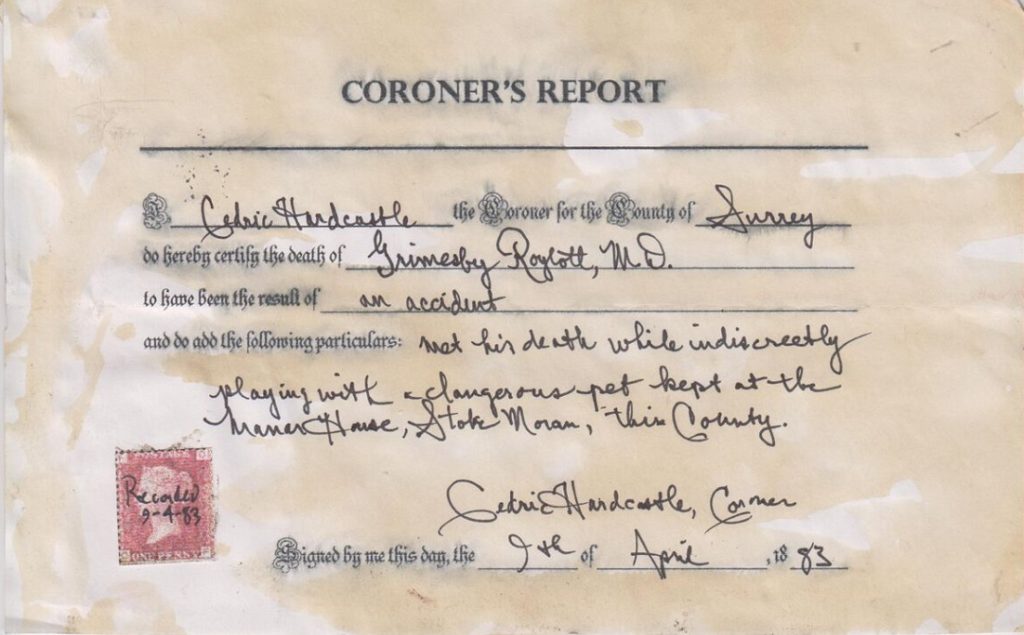 CORONER'S REPORT
I, Cedric Hardcastle the Coroner for the County of Surrey
do hereby certify the death of Grimesby Roylott, M.D.
to have been the result of an accident
and do add the following particulars: met his death while indiscreetly
playing with a dangerous pet kept at the
Manor House, Stoke Moran, this County.
POSTAGE
Recorded
9-4-83
ONE PENNY
Cedric Hardcastle, Coroner
Signed by me this day, the 9th of April, 1883